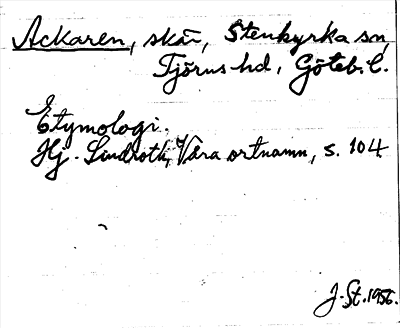 Ackaren, skär, Stenkyrka sn,
Tjörns hd, Göteb. l.
Etymologi.
Hj. Lindroth, Våra ortnamn, s. 104.
J. St. 1956.